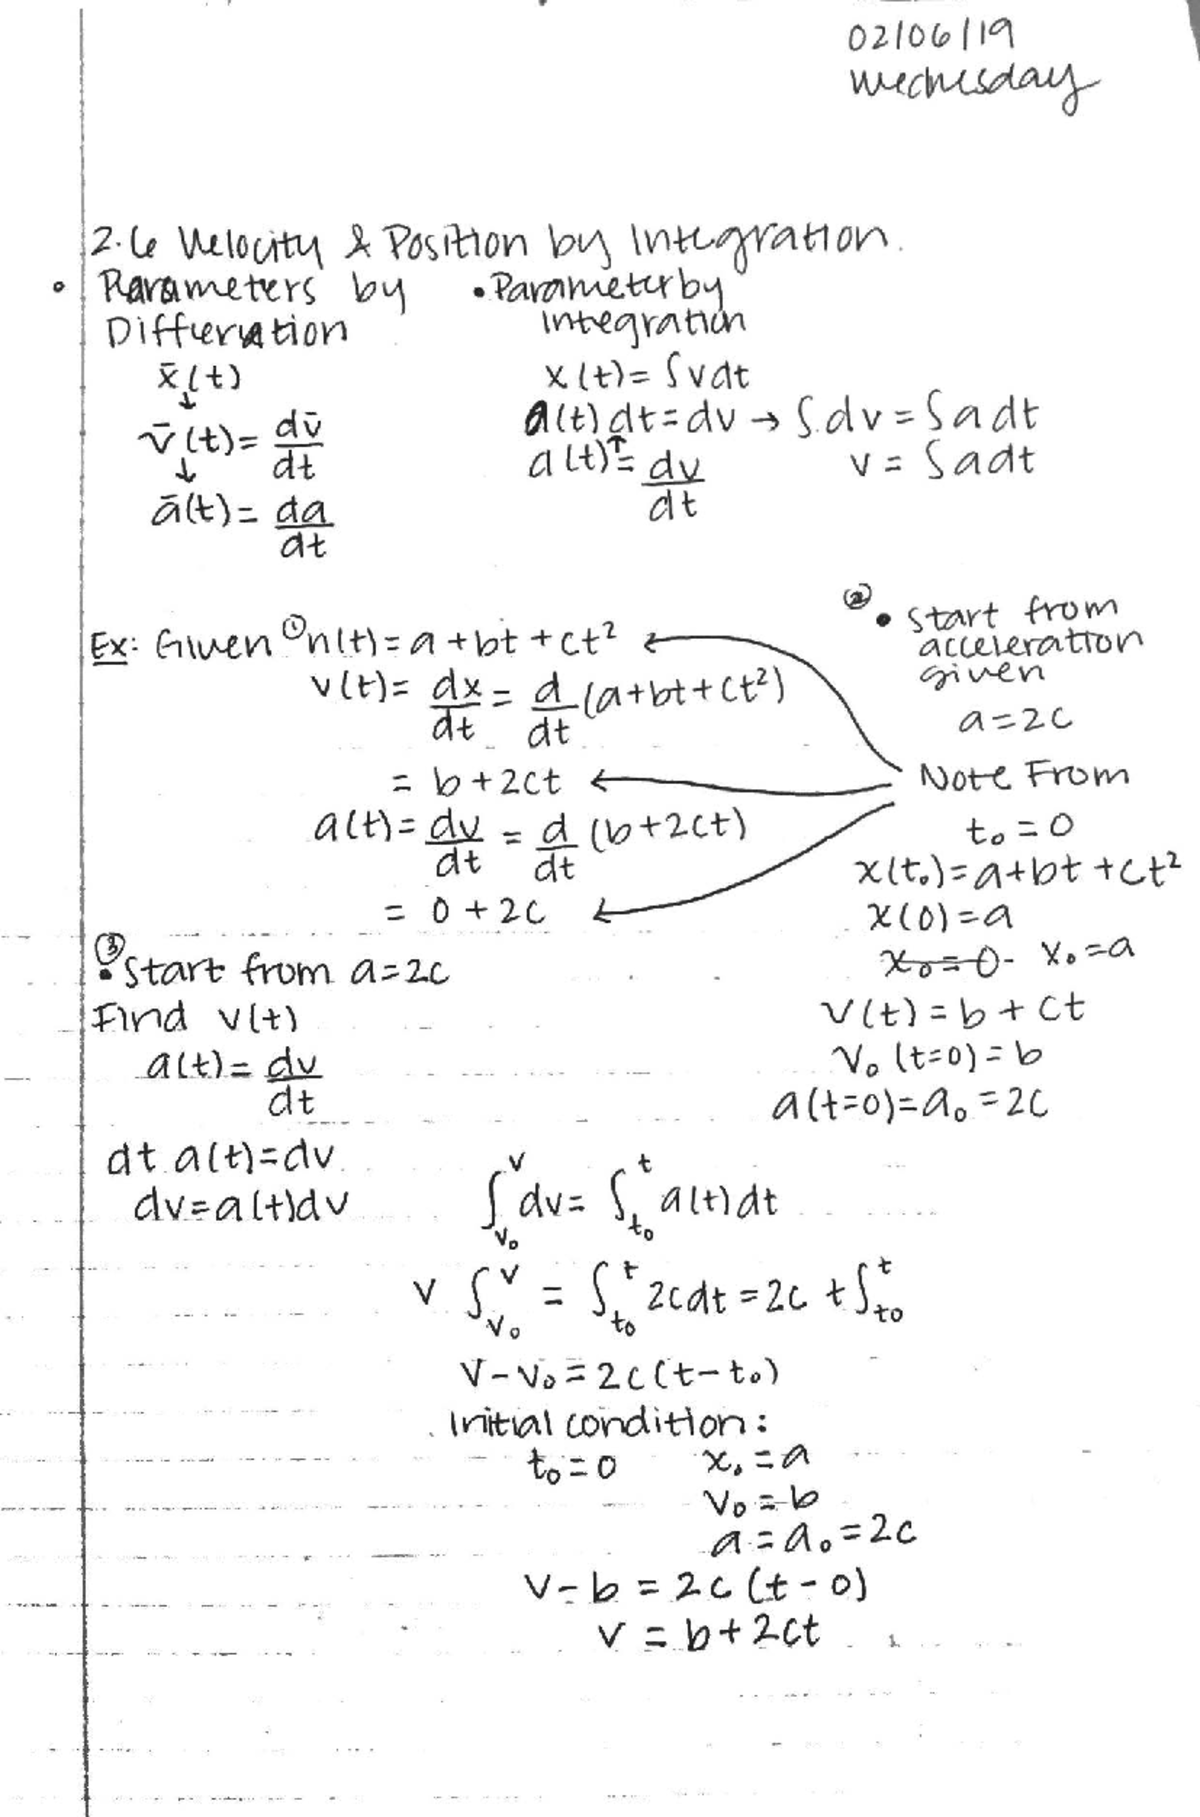 02/06/19
Wednesday
2.6 Velocity & Position by Integration.
• Parameters by Differention
x̄(t)
↓
v̄(t) = dv̄/dt
↓
ā(t) = da/dt
• Parameter by integration
x(t) = ∫vdt
a(t) dt = dv → ∫dv = ∫adt
a(t) = dv/dt
v = ∫adt
Ex: Given ① n(t) = a + bt + ct²
v(t) = dx/dt = d/dt (a+bt+ct²)
= b + 2ct
a(t) = dv/dt = d/dt (b+2ct)
= 0 + 2c
② • start from
acceleration
given
a = 2c
Note From
t₀ = 0
x(t₀) = a+bt+ct²
x(0) = a
x₀=0- x₀ = a
v(t) = b + ct
v₀ (t=0) = b
a(t=0) = a₀ = 2c
③ • Start from a = 2c
Find v(t)
a(t) = dv/dt
dt a(t) = dv
dv = a(t)dv
∫_v₀^v dv = ∫_t₀^t a(t)dt
v ∫_v₀^v = ∫_t₀^t 2cdt = 2c t∫_t₀^t
v - v₀ = 2c(t - t₀)
Initial condition:
t₀ = 0 x₀ = a
v₀ = b
a = a₀ = 2c
v - b = 2c (t - 0)
v = b + 2ct